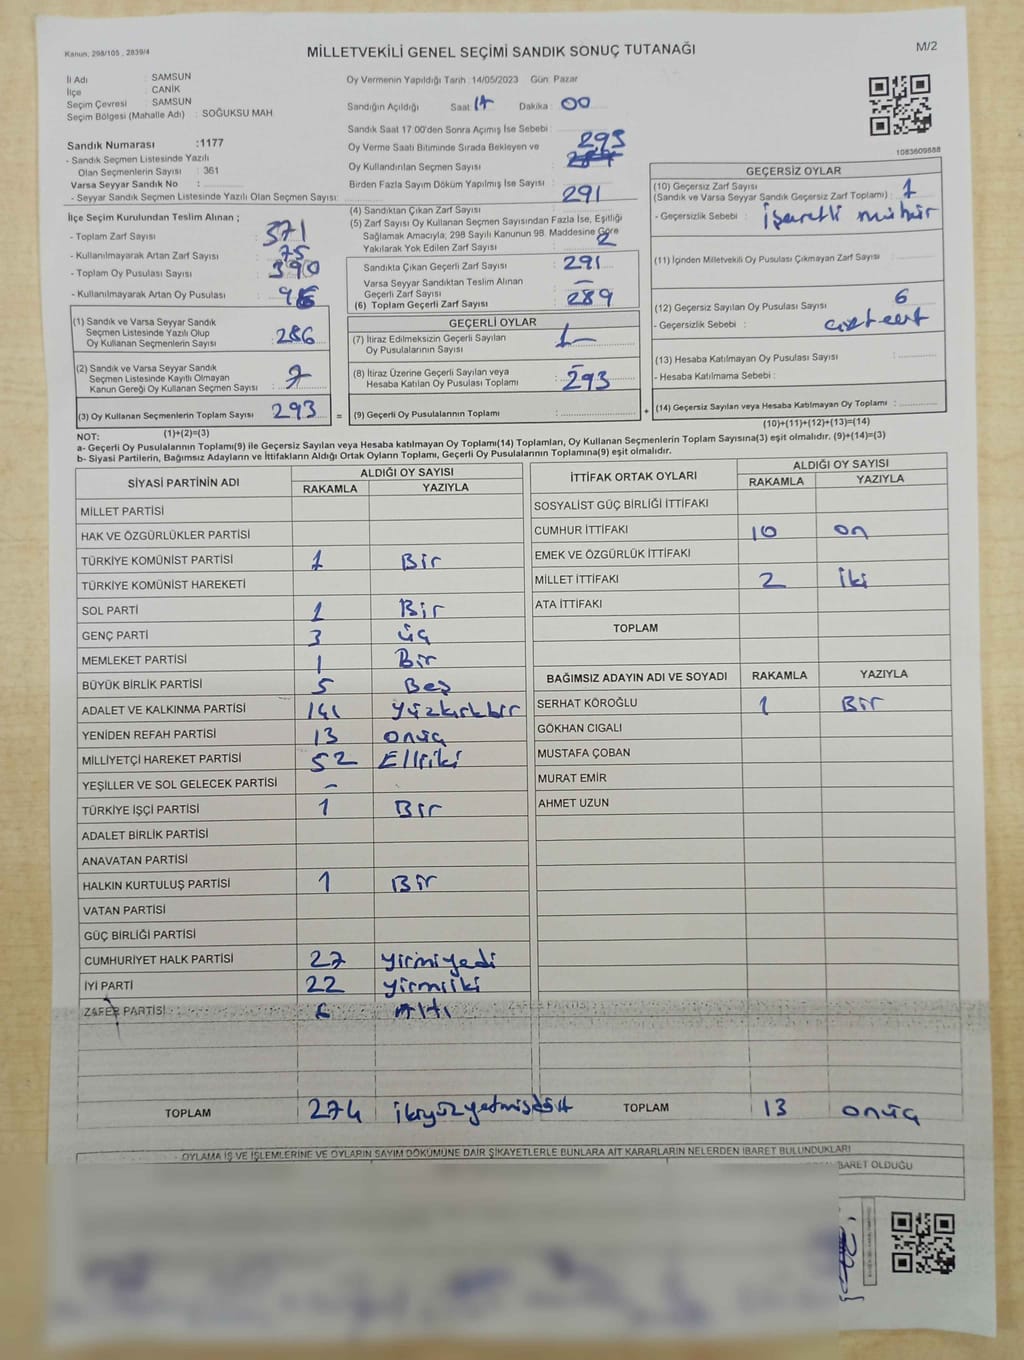 Kanun: 298/105 , 2839/4
MİLLETVEKİLİ GENEL SEÇİMİ SANDIK SONUÇ TUTANAĞI
M/2
İl Adı : SAMSUN
İlçe : CANİK
Seçim Çevresi : SAMSUN
Seçim Bölgesi (Mahalle Adı) : SOĞUKSU MAH
Sandık Numarası :1177
- Sandık Seçmen Listesinde Yazılı
Olan Seçmenlerin Sayısı : 361
Varsa Seyyar Sandık No :
- Seyyar Sandık Seçmen Listesinde Yazılı Olan Seçmen Sayısı:
Oy Vermenin Yapıldığı Tarih : 14/05/2023 Gün: Pazar
Sandığın Açıldığı Saat 17 Dakika : 00
Sandık Saat 17:00'den Sonra Açımış İse Sebebi :
Oy Verme Saati Bitiminde Sırada Bekleyen ve
Oy Kullandırılan Seçmen Sayısı : 293
Birden Fazla Sayım Döküm Yapılmış İse Sayısı :
1083609888
İlçe Seçim Kurulundan Teslim Alınan ;
- Toplam Zarf Sayısı : 371
- Kullanılmayarak Artan Zarf Sayısı : 75
- Toplam Oy Pusulası Sayısı : 390
- Kullanılmayarak Artan Oy Pusulası :
(1) Sandık ve Varsa Seyyar Sandık
Seçmen Listesinde Yazılı Olup
Oy Kullanan Seçmenlerin Sayısı : 286
(2) Sandık ve Varsa Seyyar Sandık
Seçmen Listesinde Kayıtlı Olmayan
Kanun Gereği Oy Kullanan Seçmen Sayısı : 7
(3) Oy Kullanan Seçmenlerin Toplam Sayısı : 293 =
(1)+(2)=(3)
(4) Sandıktan Çıkan Zarf Sayısı : 291
(5) Zarf Sayısı Oy Kullanan Seçmen Sayısından Fazla İse, Eşitliği
Sağlamak Amacıyla, 298 Sayılı Kanunun 98. Maddesine Göre
Yakılarak Yok Edilen Zarf Sayısı : 2
Sandıkta Çıkan Geçerli Zarf Sayısı : 291
Varsa Seyyar Sandıktan Teslim Alınan
Geçerli Zarf Sayısı : –
(6) Toplam Geçerli Zarf Sayısı : 289
GEÇERLİ OYLAR
(7) İtiraz Edilmeksizin Geçerli Sayılan
Oy Pusulalarının Sayısı :
(8) İtiraz Üzerine Geçerli Sayılan veya
Hesaba Katılan Oy Pusulası Toplamı : 293
(9) Geçerli Oy Pusulalarının Toplamı : +
GEÇERSİZ OYLAR
(10) Geçersiz Zarf Sayısı
(Sandık ve Varsa Seyyar Sandık Geçersiz Zarf Toplamı) : 1
- Geçersizlik Sebebi : işaretli mühür
(11) İçinden Milletvekili Oy Pusulası Çıkmayan Zarf Sayısı :
(12) Geçersiz Sayılan Oy Pusulası Sayısı : 6
- Geçersizlik Sebebi :
(13) Hesaba Katılmayan Oy Pusulası Sayısı :
- Hesaba Katılmama Sebebi :
(14) Geçersiz Sayılan veya Hesaba Katılmayan Oy Toplamı :
(10)+(11)+(12)+(13)=(14)
NOT:
a- Geçerli Oy Pusulalarının Toplamı(9) ile Geçersiz Sayılan veya Hesaba katılmayan Oy Toplamı(14) Toplamları, Oy Kullanan Seçmenlerin Toplam Sayısına(3) eşit olmalıdır. (9)+(14)=(3)
b- Siyasi Partilerin, Bağımsız Adayların ve İttifakların Aldığı Ortak Oyların Toplamı, Geçerli Oy Pusulalarının Toplamına(9) eşit olmalıdır.
SİYASİ PARTİNİN ADI ALDIĞI OY SAYISI
RAKAMLA YAZIYLA
MİLLET PARTİSİ
HAK VE ÖZGÜRLÜKLER PARTİSİ
TÜRKİYE KOMÜNİST PARTİSİ 1 Bir
TÜRKİYE KOMÜNİST HAREKETİ
SOL PARTİ 1 Bir
GENÇ PARTİ 3 üç
MEMLEKET PARTİSİ 1 Bir
BÜYÜK BİRLİK PARTİSİ 5 Beş
ADALET VE KALKINMA PARTİSİ 141 yüzkırkbir
YENİDEN REFAH PARTİSİ 13 onüç
MİLLİYETÇİ HAREKET PARTİSİ 52 Elliiki
YEŞİLLER VE SOL GELECEK PARTİSİ –
TÜRKİYE İŞÇİ PARTİSİ 1 Bir
ADALET BİRLİK PARTİSİ
ANAVATAN PARTİSİ
HALKIN KURTULUŞ PARTİSİ 1 Bir
VATAN PARTİSİ
GÜÇ BİRLİĞİ PARTİSİ
CUMHURİYET HALK PARTİSİ 27 yirmiyedi
İYİ PARTİ 22 yirmiiki
ZAFER PARTİSİ 6 Altı
TOPLAM 274 ikiyüzyetmişdört
İTTİFAK ORTAK OYLARI ALDIĞI OY SAYISI
RAKAMLA YAZIYLA
SOSYALİST GÜÇ BİRLİĞİ İTTİFAKI
CUMHUR İTTİFAKI 10 on
EMEK VE ÖZGÜRLÜK İTTİFAKI
MİLLET İTTİFAKI 2 iki
ATA İTTİFAKI
TOPLAM
BAĞIMSIZ ADAYIN ADI VE SOYADI RAKAMLA YAZIYLA
SERHAT KÖROĞLU 1 Bir
GÖKHAN CIGALI
MUSTAFA ÇOBAN
MURAT EMİR
AHMET UZUN
TOPLAM 13 onüç
OYLAMA İŞ VE İŞLEMLERİNE VE OYLARIN SAYIM DÖKÜMÜNE DAİR ŞİKAYETLERLE BUNLARA AİT KARARLARIN NELERDEN İBARET BULUNDUKLARI
İBARET OLDUĞU